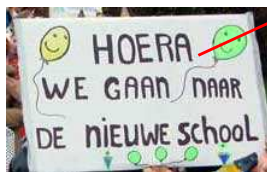 HOERA
WE GAAN NAAR
DE NIEUWE SCHOOL